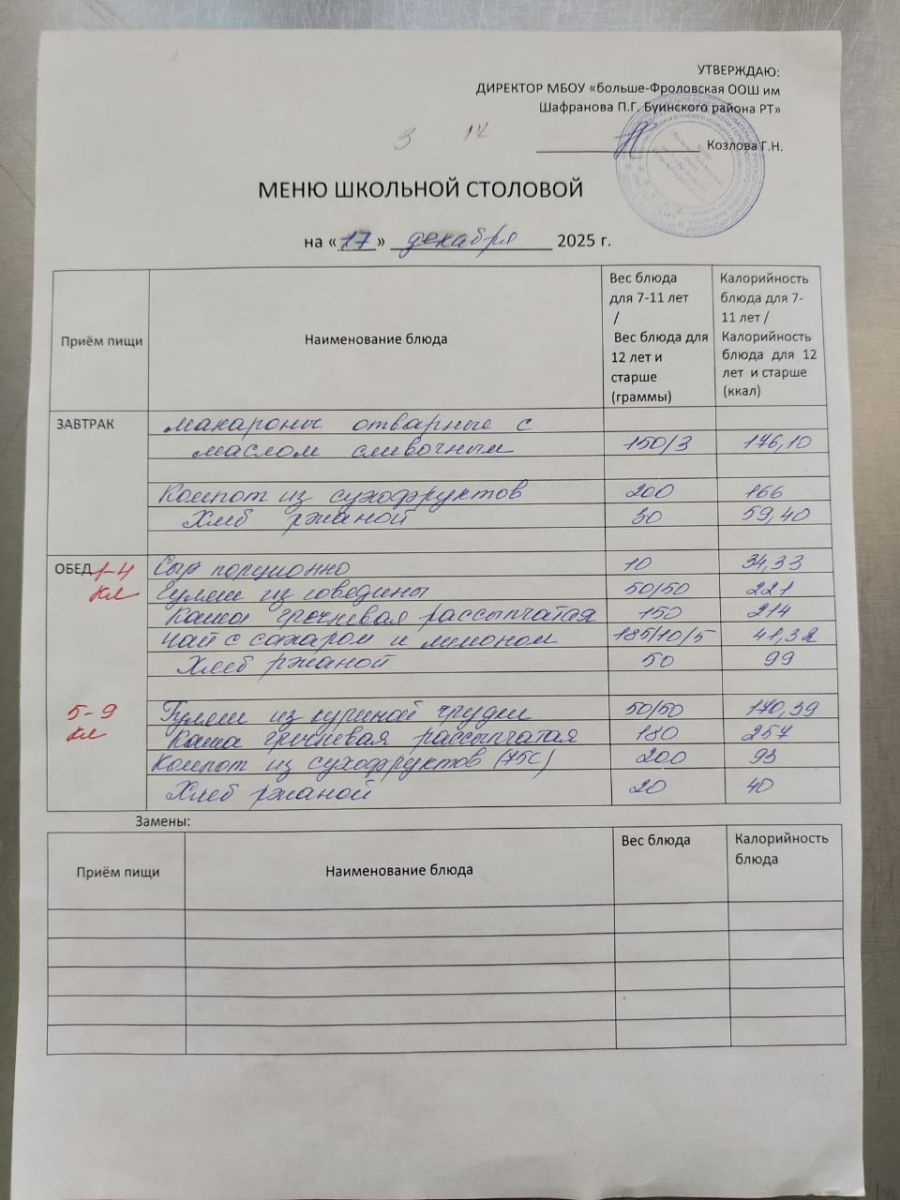 УТВЕРЖДАЮ:
ДИРЕКТОР МБОУ «больше-Фроловская ООШ им
Шафранова П.Г. Буинского района РТ»
Козлова Г.Н.
МЕНЮ ШКОЛЬНОЙ СТОЛОВОЙ
на «17» декабря 2025 г.
Приём пищи
Наименование блюда
Вес блюда
для 7-11 лет
/
Вес блюда для
12 лет и
старше
(граммы)
Калорийность
блюда для 7-
11 лет /
Калорийность
блюда для 12
лет и старше
(ккал)
ЗАВТРАК
макароны отварные с
маслом сливочным 150/3 176,10
Компот из сухофруктов 200 166
Хлеб ржаной 30 59,40
ОБЕД 1-4 Сыр порционно 10 34,33
кл Гуляш из говядины 50/50 221
Каша гречневая рассыпчатая 150 214
чай с сахаром и лимоном 185/10/5 41,32
Хлеб ржаной 50 99
5-9 Гуляш из куриной грудки 50/50 140,39
кл Каша гречневая рассыпчатая 180 257
Компот из сухофруктов (75С) 200 93
Хлеб ржаной 20 40
Замены:
Приём пищи
Наименование блюда
Вес блюда
Калорийность
блюда